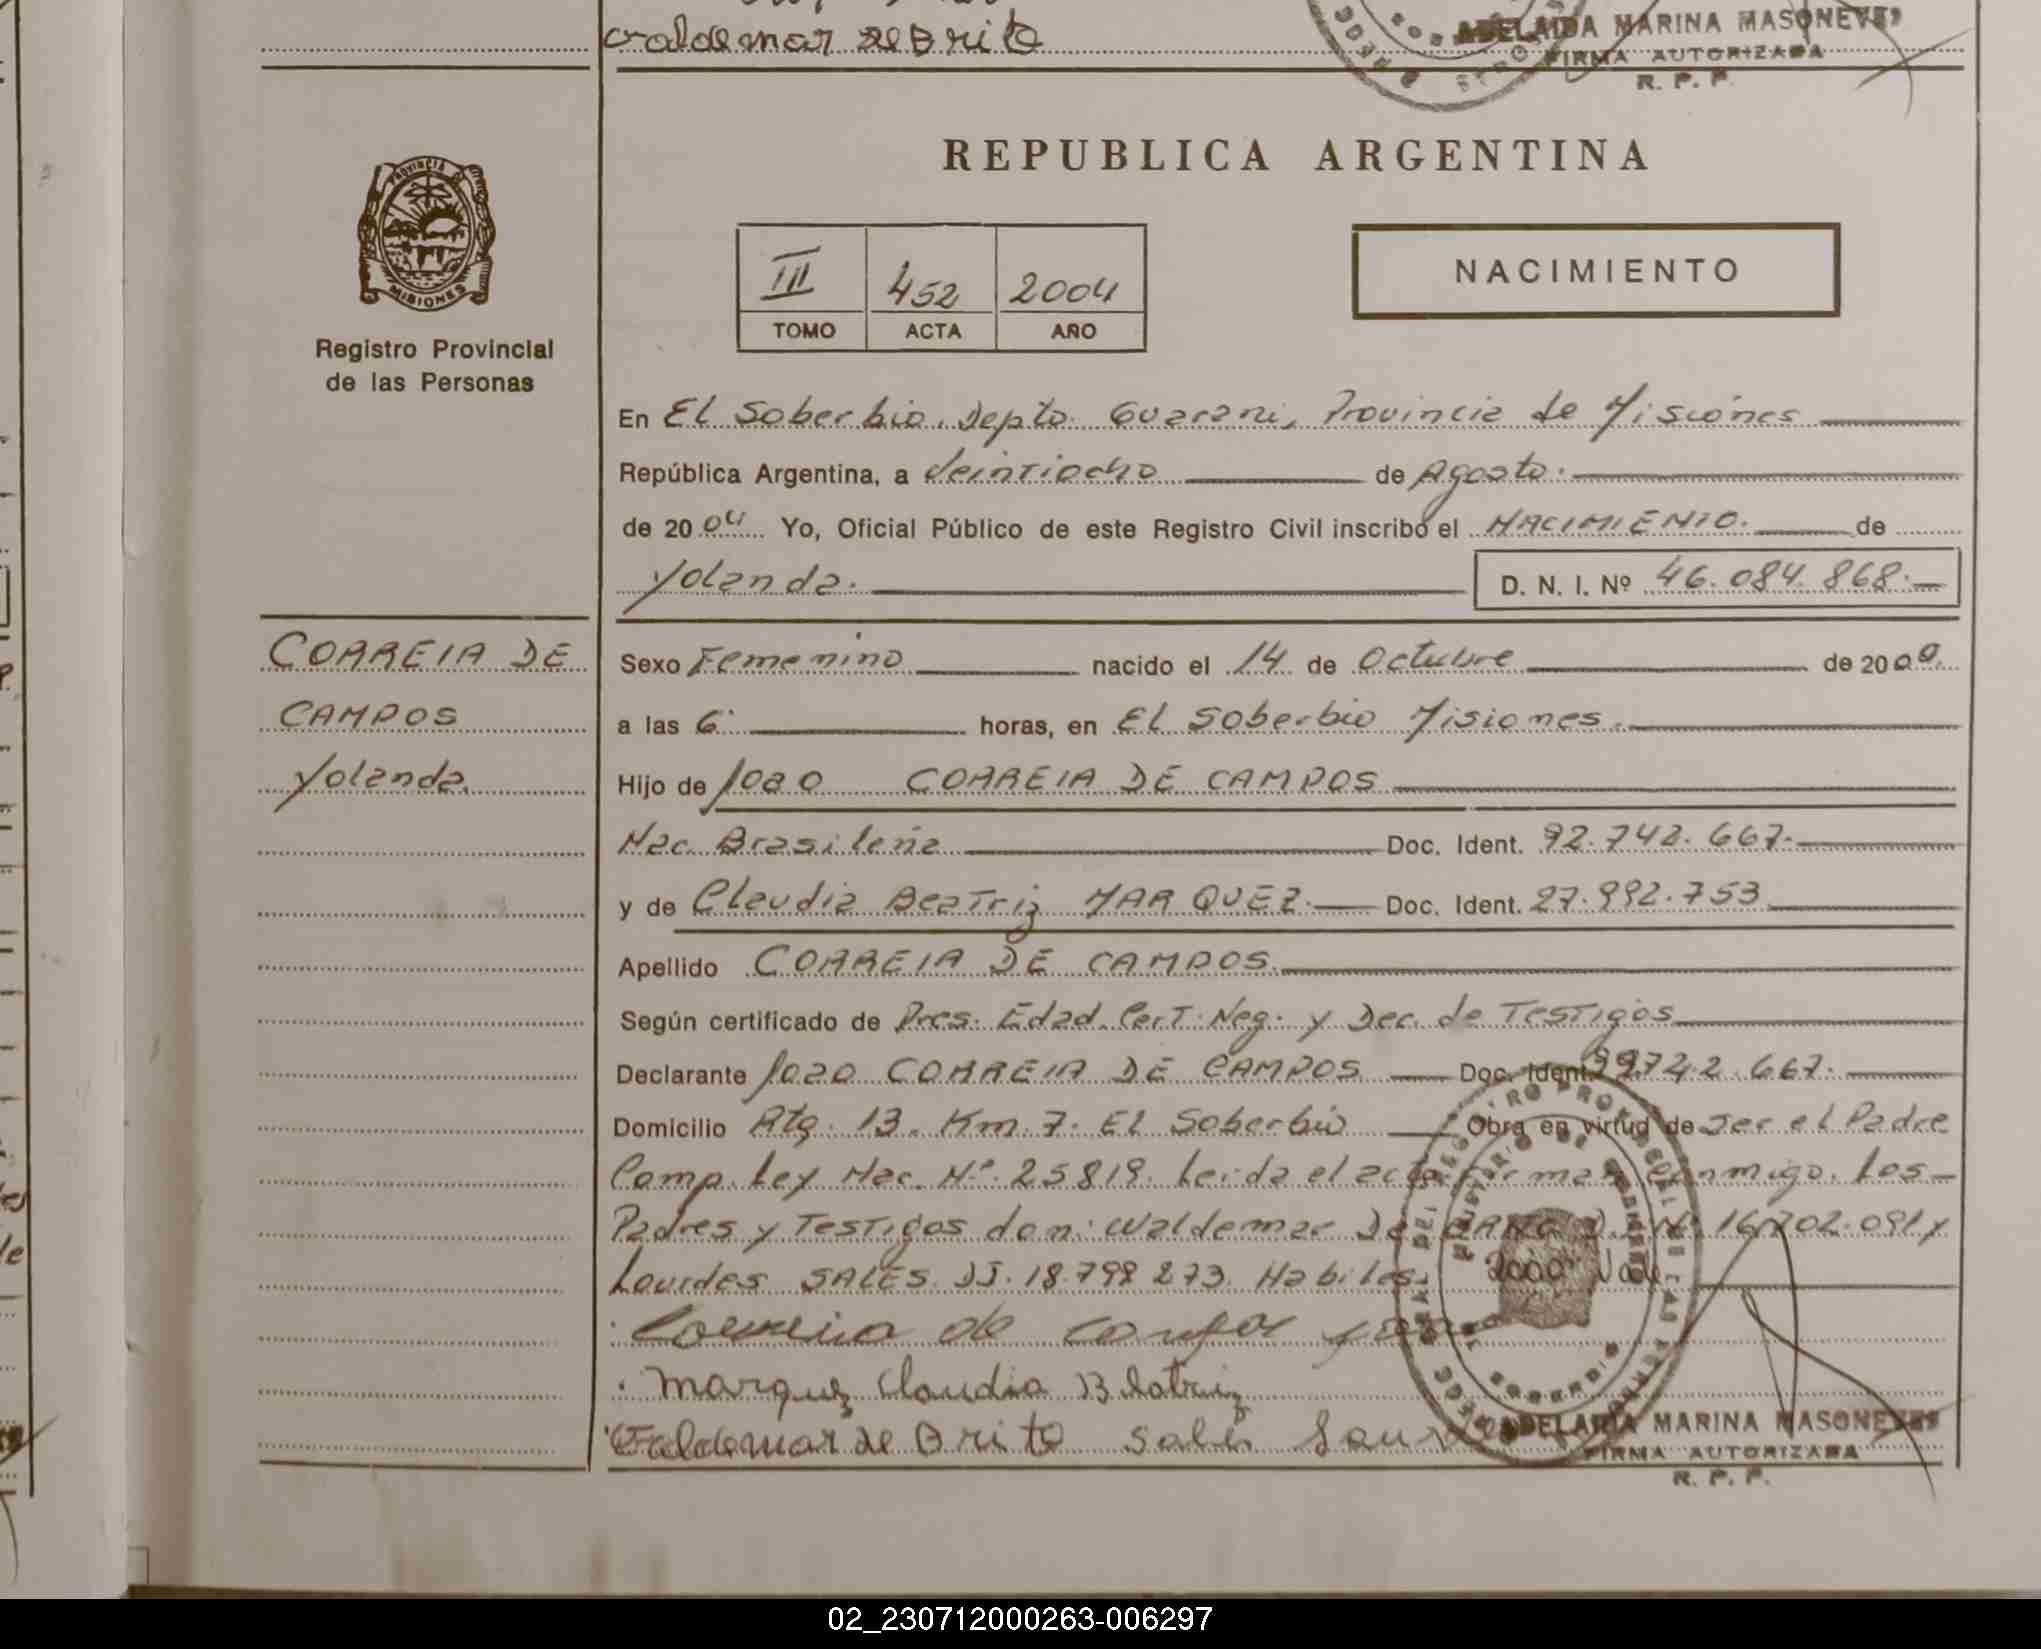 Valdemar de Brito
ADELAIDA MARINA MASONEVES
FIRMA AUTORIZADA
R. P. P.
REPUBLICA ARGENTINA
PROVINCIA DE
MISIONES
Registro Provincial
de las Personas
III 452 2004
TOMO ACTA AÑO
NACIMIENTO
En El Soberbio. Depto. Guarani, Provincia de Misiones
República Argentina, a Veintiocho de Agosto.
de 2004 Yo, Oficial Público de este Registro Civil inscribo el NACIMIENTO. de
Yolanda. D. N. I. Nº 46.084.868.
CORREIA DE
CAMPOS
Yolanda.
Sexo Femenino nacido el 14 de Octubre de 2000.
a las 6 horas, en El Soberbio Misiones.
Hijo de Joao CORREIA DE CAMPOS
Nac. Brasileña Doc. Ident. 92.742.667.
y de Claudia Beatriz MARQUEZ. Doc. Ident. 27.992.753
Apellido CORREIA DE CAMPOS.
Según certificado de Pres. Edad. Cert. Neg. y Dec. de Testigos
Declarante Joao CORREIA DE CAMPOS Doc. Ident. 92742.667.
Domicilio Rta. 13. Km. 7. El Soberbio Obra en virtud de ser el Padre
Comp. Ley Nac. Nº 25819. Leida el acta firman conmigo. Los
Padres y Testigos don: Waldemar De 16.702.091 y
Lourdes SALES. DJ. 18.798 273. Habiles. 2000 Vale
Correia de Campos
Marquez Claudia Beatriz
Valdemar de Brito Sales
ADELAIDA MARINA MASONEVES
FIRMA AUTORIZADA
R. P. P.
02_230712000263-006297